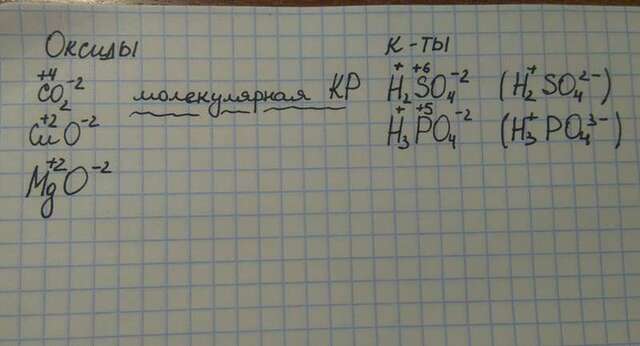 Оксиды
C⁺⁴O₂⁻² молекулярная КР
Cu⁺²O⁻²
Mg⁺²O⁻²
к-ты
H₂⁺S⁺⁶O₄⁻² (H₂⁺SO₄²⁻)
H₃⁺P⁺⁵O₄⁻² (H₃⁺PO₄³⁻)